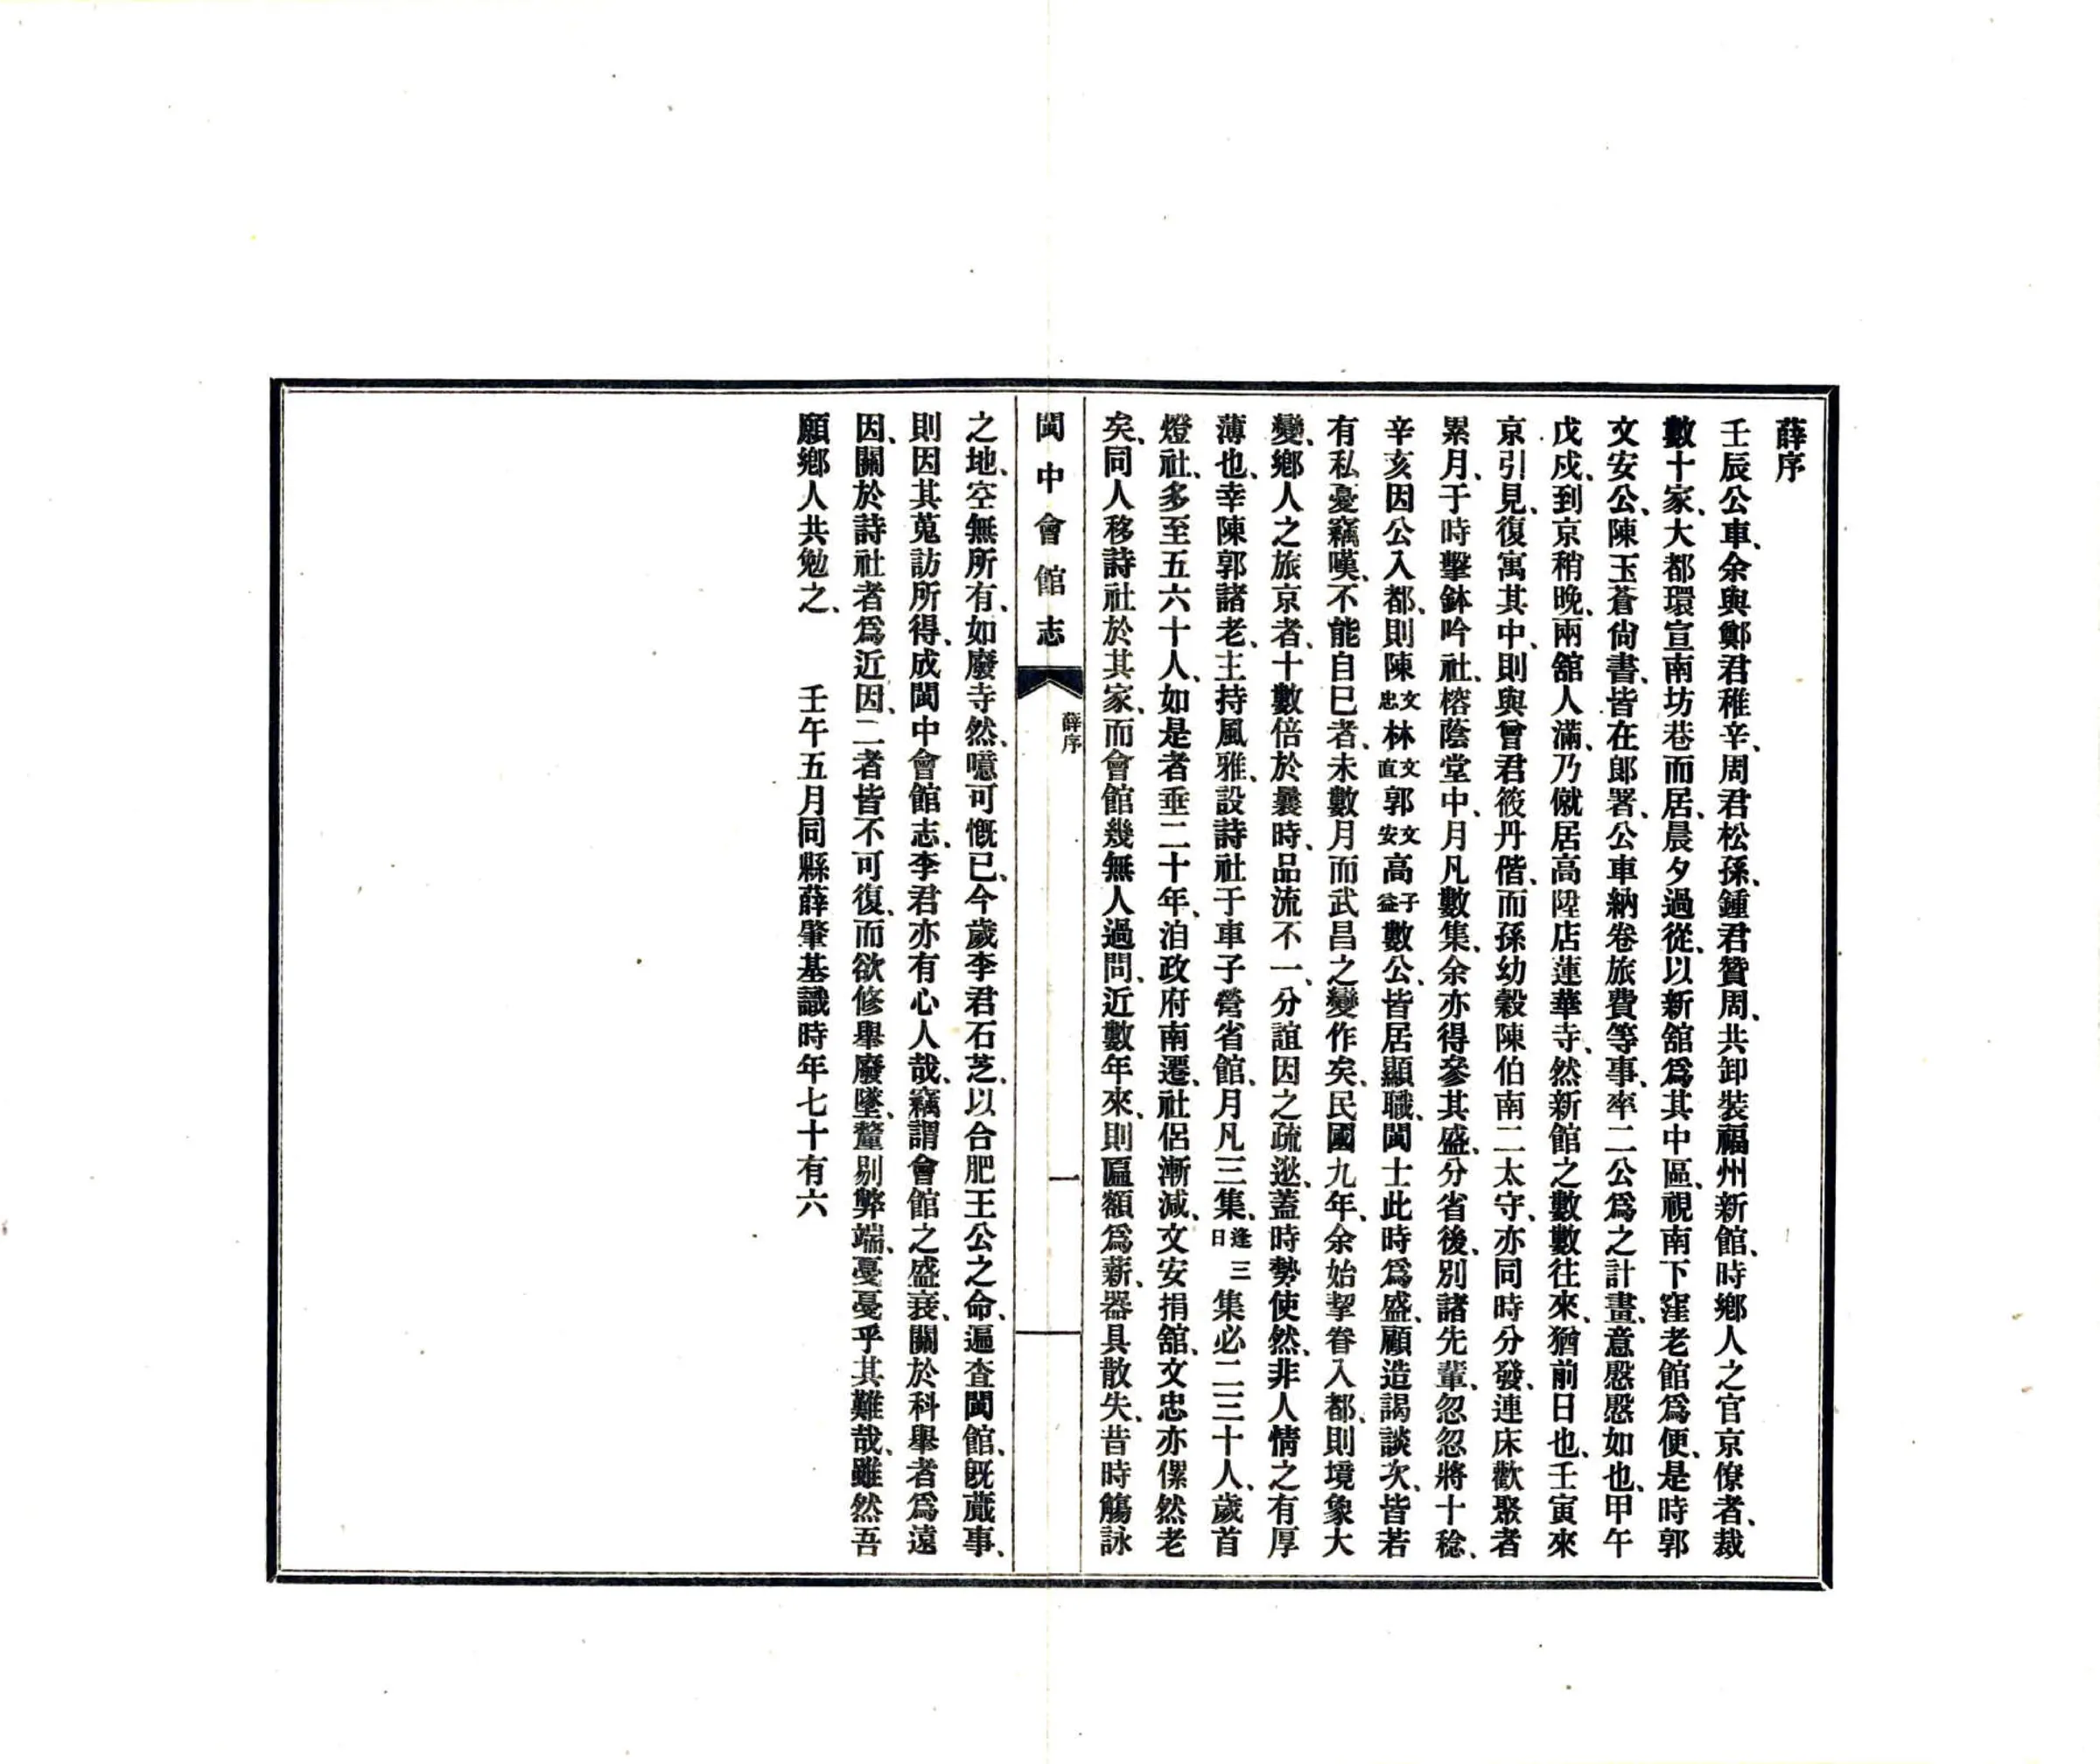 薛序
壬辰公車、余與鄭君稚辛、周君松孫、鍾君贊周、共卸裝福州新館、時鄉人之官京僚者、裁
數十家、大都環宣南坊巷而居、晨夕過從、以新舘爲其中區、視南下窪老館爲便、是時郭
文安公、陳玉蒼尙書、皆在郞署、公車納卷旅費等事、率二公爲之計畫、意慇慇如也、甲午
戊戍、到京稍晚、兩舘人滿、乃僦居高陞店蓮華寺、然新館之數數往來、猶前日也、壬寅來
京引見、復寓其中、則與曾君筱丹偕、而孫幼穀陳伯南二太守、亦同時分發、連床歡聚者
累月、于時擊鉢吟社、榕蔭堂中、月凡數集、余亦得參其盛、分省後、別諸先輩、忽忽將十稔、
辛亥因公入都、則陳文忠林文直郭文安高子益數公、皆居顯職、閩士此時爲盛、顧造謁談次、皆若
有私憂竊嘆、不能自巳者、未數月而武昌之變作矣、民國九年、余始挈眷入都、則境象大
變、鄉人之旅京者、十數倍於曩時、品流不一、分誼因之疏逖、蓋時勢使然、非人情之有厚
薄也、幸陳郭諸老、主持風雅、設詩社于車子營省館、月凡三集、逢三日集必二三十人、歲首
燈社、多至五六十人、如是者垂二十年、洎政府南遷、社侶漸減、文安捐舘、文忠亦傫然老
矣、同人移詩社於其家、而會館幾無人過問、近數年來、則匾額爲薪、器具散失、昔時觴詠
閩中會館志
薛序
一
之地、空無所有、如廢寺然、噫可慨已、今歲李君石芝、以合肥王公之命、遍查閩館、旣蕆事、
則因其蒐訪所得、成閩中會館志、李君亦有心人哉、竊謂會館之盛衰、關於科舉者爲遠
因、關於詩社者爲近因、二者皆不可復、而欲修舉廢墜、釐剔弊端、戞戞乎其難哉、雖然吾
願鄉人共勉之、　　壬午五月同縣薛肇基識時年七十有六